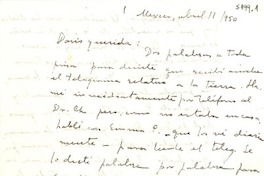 5849.1
Mexico, abril 11/950
Doris querida: Dos palabras, a toda
prisa para decirte que recibí anoche
el telegrama relativo a la tierra. Lla-
mé inmediatamente por teléfono al
Dr. Ch. pero, como no estaba en casa,
hablé con Emma P. que los vé diaria
mente para leerle el teleg. Se
lo dicté palabra por palabra para